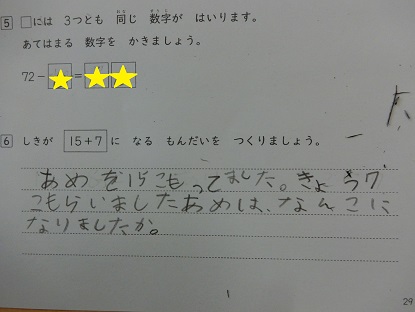 5 □には 3つとも 同じ 数字が はいります。
あてはまる 数字を かきましょう。
72−□=□□
6 しきが 15+7 に なる もんだいを つくりましょう。
あめを15こもってました。きょう7
こもらいましたあめは、なんこに
なりましたか。
29